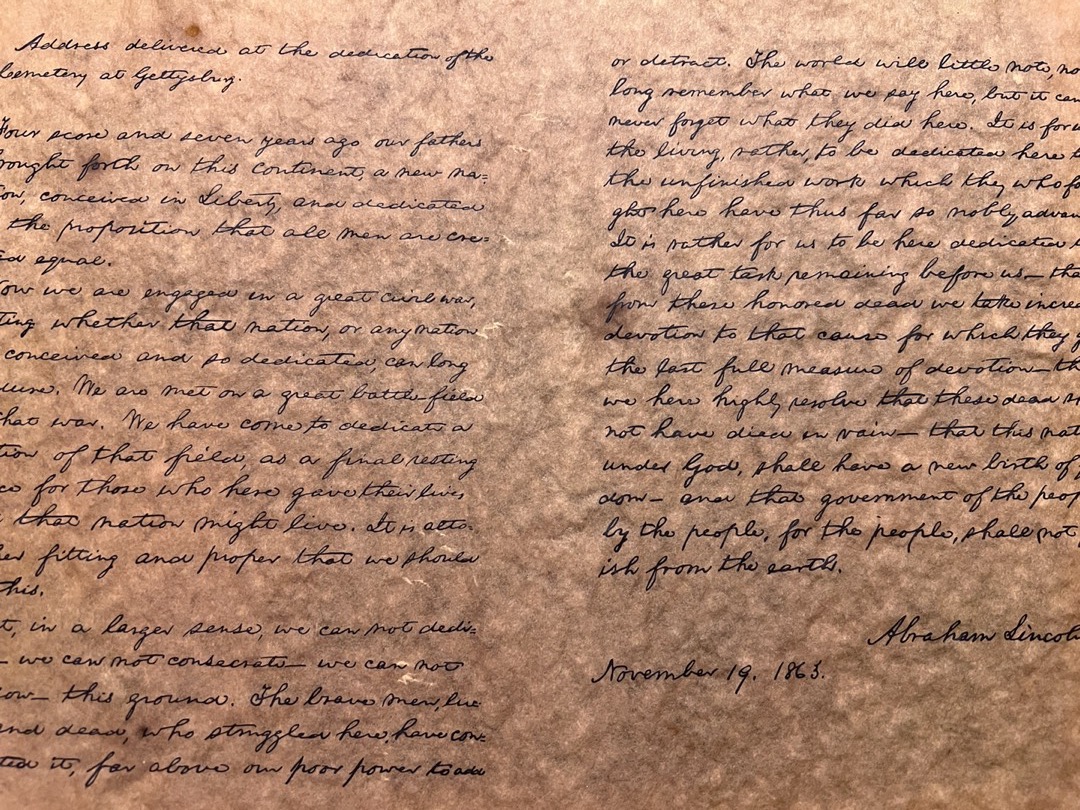 Address delivered at the dedication of the
Cemetery at Gettysburg.
Four score and seven years ago our fathers
brought forth on this continent, a new na-
on, conceived in Liberty, and dedicated
the proposition that all men are cre-
ed equal.
Now we are engaged in a great civil war,
ting whether that nation, or any nation
conceived and so dedicated, can long
dure. We are met on a great battle-field
that war. We have come to dedicate a
tion of that field, as a final resting
ce for those who here gave their lives
that nation might live. It is alto-
her fitting and proper that we should
this.
t, in a larger sense, we can not dedi-
— we can not consecrate — we can not
low — this ground. The brave men, liv-
and dead, who struggled here, have con-
ted it, far above our poor power to add
or detract. The world will little note, no
long remember what we say here, but it can
never forget what they did here. It is for u
the living, rather, to be dedicated here t
the unfinished work which they who fo
ght here have thus far so nobly advan
It is rather for us to be here dedicated t
the great task remaining before us — tha
from these honored dead we take incre
devotion to that cause for which they g
the last full measure of devotion — th
we here highly resolve that these dead s
not have died in vain — that this nat
under God, shall have a new birth of
dom — and that government of the peop
by the people, for the people, shall not
ish from the earth.
Abraham Lincoln
November 19, 1863.